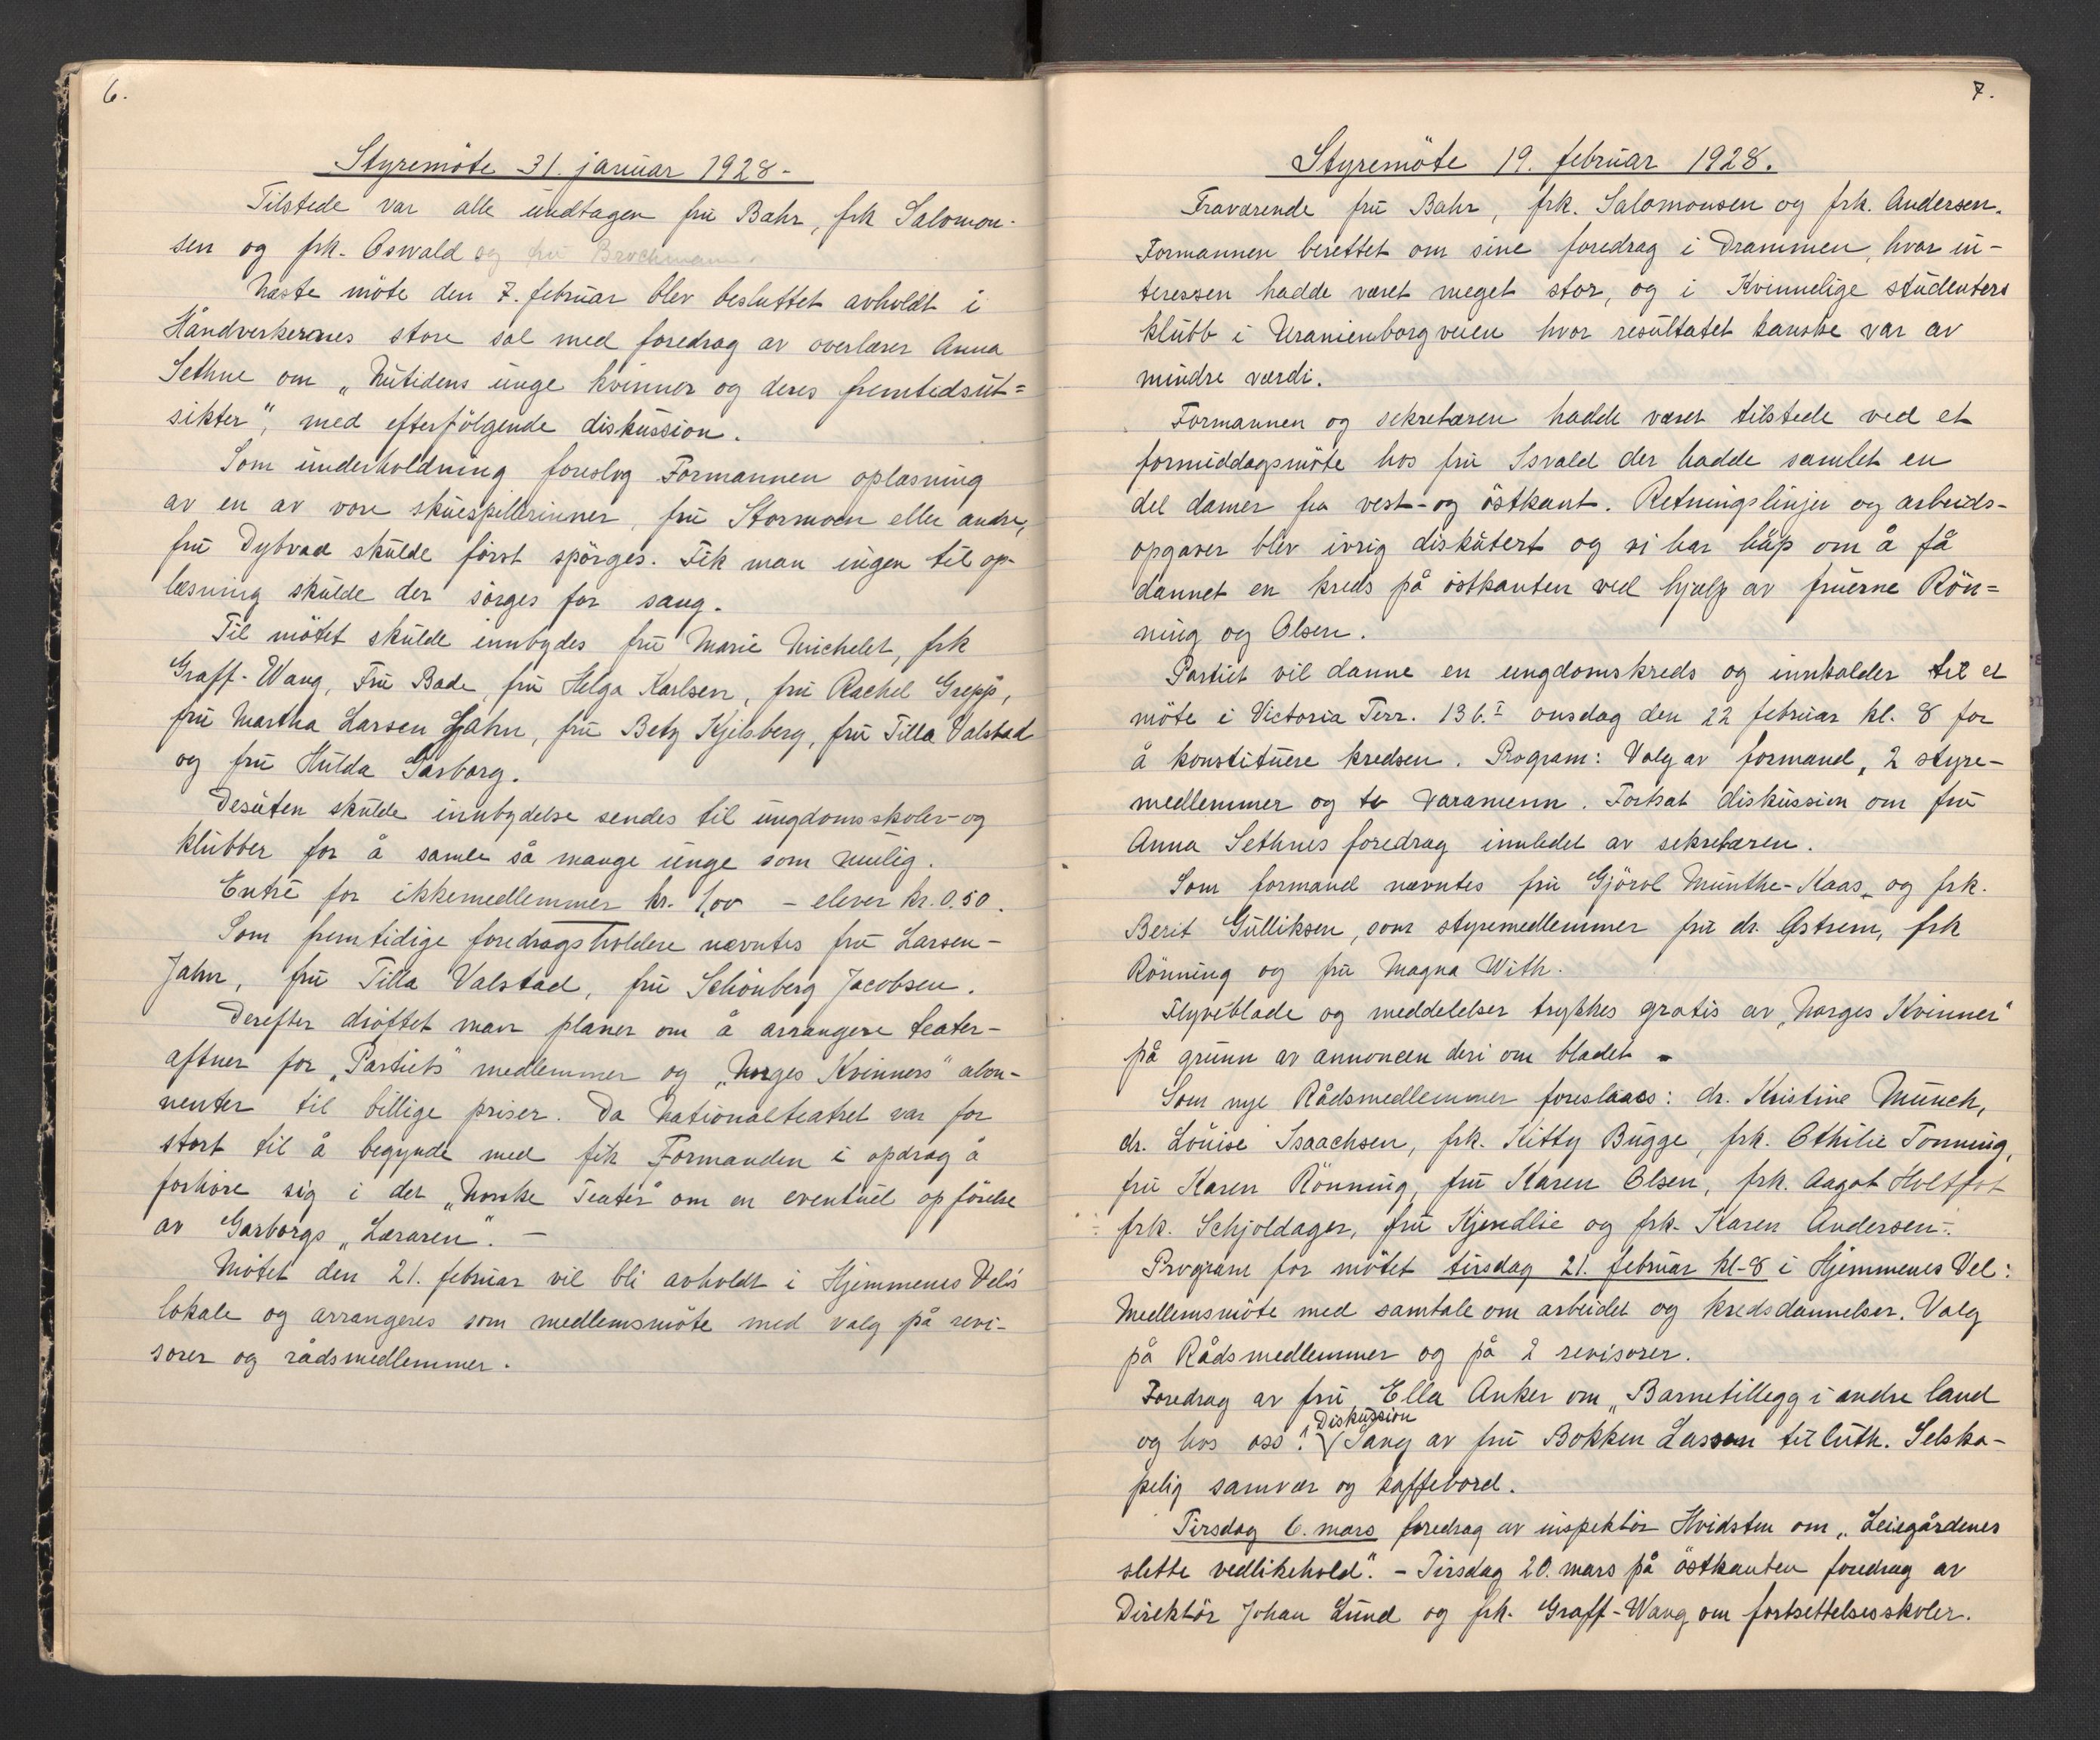 6.
Styremöte 31. januar 1928-
Tilstede var alle undtagen fru Bahr, frk Salomon-
sen og frk. Oswald og fru Brochmann.
Næste möte den 7. februar blev besluttet avholdt i
Håndverkernes store sal med foredrag av overlærer Anna
Sethne om „Nutidens unge kvinner og deres fremtidsut=
sikter", med efterfölgende diskussion.
Som underholdning foreslog Formannen oplæsning
av en av vore skuespillerinner, fru Stormoen eller andre,
fru Dybvad skulde först spörges. Fik man ingen til op-
læsning skulde der sörges for sang.
Til mötet skulde innbydes fru Marie Michelet, frk
Graff-Wang, Fru Bade, fru Helga Karlsen, fru Rachel Grepp,
fru Martha Larsen Jahn, fru Betzy Kjelsberg, fru Tilla Valstad
og fru Hulda Garborg.
Desuten skulde innbydelse sendes til ungdomsskoler- og
klubber for å samle så mange unge som mulig.
Entré for ikkemedlemmer kr. 1,00 - elever kr. 0.50.
Som fremtidige foredragsholdere nævntes fru Larsen-
Jahn, fru Tilla Valstad, fru Schönberg Jacobsen.
Derefter dröftet man planer om å arrangere teater-
aftner for „Partiets" medlemmer og „Norges Kvinners" abon-
nenter til billige priser. Da Nationalteatret var for
stort til å begynde med fik Formanden i opdrag å
forhöre sig i det „Norske Teater" om en eventuel opförelse
av Garborgs „Læraren". -
Mötet den 21. februar vil bli avholdt i Hjemmenes Vel's
lokale og arrangeres som medlemsmöte med valg på revi-
sorer og rådsmedlemmer.
7.
Styremöte 19. februar 1928.
Fraværende fru Bahr, frk. Salomonsen og frk. Andersen.
Formannen berettet om sine foredrag i Drammen, hvor in-
teressen hadde været meget stor, og i Kvinnelige studenters
klubb i Uranienborgveien hvor resultatet kanske var av
mindre værdi.
Formannen og sekretæren hadde været tilstede ved et
formiddagsmöte hos fru Isvald der hadde samlet en
del damer fra vest- og östkant. Retningslinjer og arbeids-
opgaver blev ivrig diskutert og vi har håp om å få
dannet en kreds på östkanten ved hjælp av fruerne Rön=
ning og Olsen.
Partiet vil danne en ungdomskreds og innkalder til et
möte i Victoria Terr. 13 b. I onsdag den 22 februar kl. 8 for
å konstituere kredsen. Program: Valg av formand, 2 styre-
medlemmer og to varamenn. Fortsat diskussion om fru
Anna Sethnes foredrag innledet av sekretæren.
Som formand nævntes fru Gjöril Munthe-Kaas og frk.
Berit Gulliksen, som styremedlemmer fru dr. Østrem, frk
Rönning og fru Magna With.
Flyveblade og meddelelser trykkes gratis av „Norges Kvinner"
på grunn av annoncen deri om bladet -
Som nye Rådsmedlemmer foreslaaes: dr. Kristine Munch,
dr. Louise Isaachsen, frk. Kitty Bugge, frk. Othilie Tonning,
fru Karen Rönning, fru Karen Olsen, frk. Aagot Holtfot
frk. Schjoldager, fru Kjendlie og frk. Karen Andersen-.
Program for mötet tirsdag 21. februar kl-8 i Hjemmenes Vel:
Medlemsmöte med samtale om arbeidet og kredsdannelser. Valg
på Rådsmedlemmer og på 2 revisorer.
Foredrag av fru Ella Anker om „Barnetillegg i andre land
og hos oss". Diskussion Sang av fru Bokken Lasson til luth. Selska-
pelig samvær og kaffebord.
Tirsdag 6. mars foredrag av inspektör Hvidsten om „Leiegårdenes
slette vedlikehold". - Tirsdag 20. mars på östkanten foredrag av
Direktör Johan Lund og frk. Graff-Wang om fortsettelsesskoler.